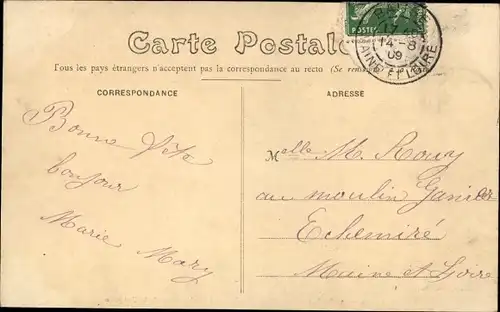 Carte Postale
POSTES
14-8
09
MAINE ET LOIRE
Tous les pays étrangers n'acceptent pas la correspondance au recto (Se rensei
CORRESPONDANCE
ADRESSE
Bonne fête
bonjour
Marie Mary
Melle M. Rouy
au moulin Ganier
Echemiré
Maine et Loire